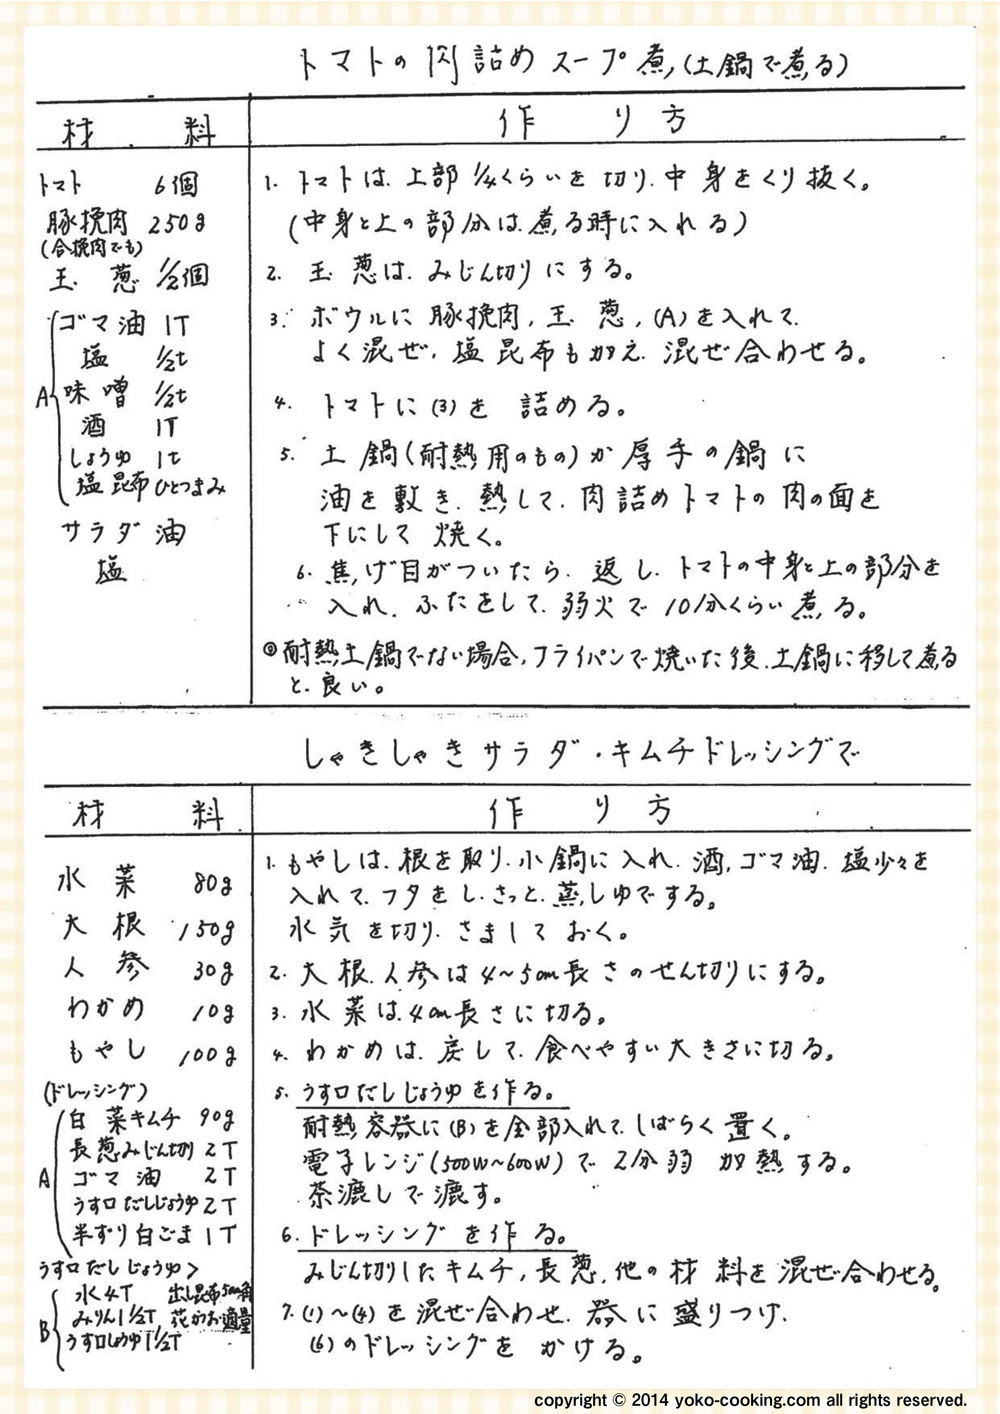 トマトの肉詰めスープ煮(土鍋で煮る)
材 料
作 り 方
トマト 6個
豚挽肉 250g
(合挽肉でも)
玉 葱 1/2個
A
ゴマ油 1T
塩 1/2t
味噌 1/2t
酒 1T
しょうゆ 1t
塩昆布 ひとつまみ
サラダ油
塩
1. トマトは、上部1/4くらいを切り、中身をくり抜く。
(中身と上の部分は、煮る時に入れる)
2. 玉葱は、みじん切りにする。
3. ボウルに豚挽肉,玉葱,(A)を入れて、
よく混ぜ、塩昆布も加え、混ぜ合わせる。
4. トマトに(3)を詰める。
5. 土鍋(耐熱用のもの)か厚手の鍋に
油を敷き、熱して、肉詰めトマトの肉の面を
下にして焼く。
6. 焦げ目がついたら、返し、トマトの中身と上の部分を
入れ、ふたをして、弱火で10分くらい煮る。
◎耐熱土鍋でない場合,フライパンで焼いた後、土鍋に移して煮る
と、良い。
しゃきしゃきサラダ・キムチドレッシングで
材 料
作 り 方
水 菜 80g
大 根 150g
人 参 30g
わかめ 10g
もやし 100g
(ドレッシング)
A
白菜キムチ 90g
長葱みじん切り 2T
ゴマ油 2T
うす口だしじょうゆ 2T
半ずり白ごま 1T
うす口だしじょうゆ>
B
水4T 出し昆布5cm角
みりん1 1/2T, 花かつお適量
うす口しょうゆ1 1/2T
1. もやしは、根を取り、小鍋に入れ、酒,ゴマ油、塩少々を
入れて、フタをし、さっと、蒸しゆでする。
水気を切り、さましておく。
2. 大根、人参は4~5cm長さのせん切りにする。
3. 水菜は、4cm長さに切る。
4. わかめは、戻して、食べやすい大きさに切る。
5. うす口だしじょうゆを作る。
耐熱容器に(B)を全部入れて、しばらく置く。
電子レンジ(500W~600W)で2分弱加熱する。
茶漉しで漉す。
6. ドレッシングを作る。
みじん切りしたキムチ,長葱,他の材料を混ぜ合わせる。
7. (1)~(4)を混ぜ合わせ、器に盛りつけ、
(6)のドレッシングをかける。
copyright © 2014 yoko-cooking.com all rights reserved.